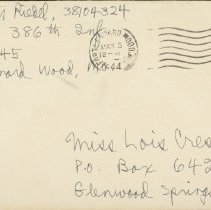 Riedel, 38704324
386th Inf
45
ard Wood, Mo
WOOD, MO.
MAY 3
12-M
44
Miss Lois Cres
P.O. Box 642
Glenwood Springs